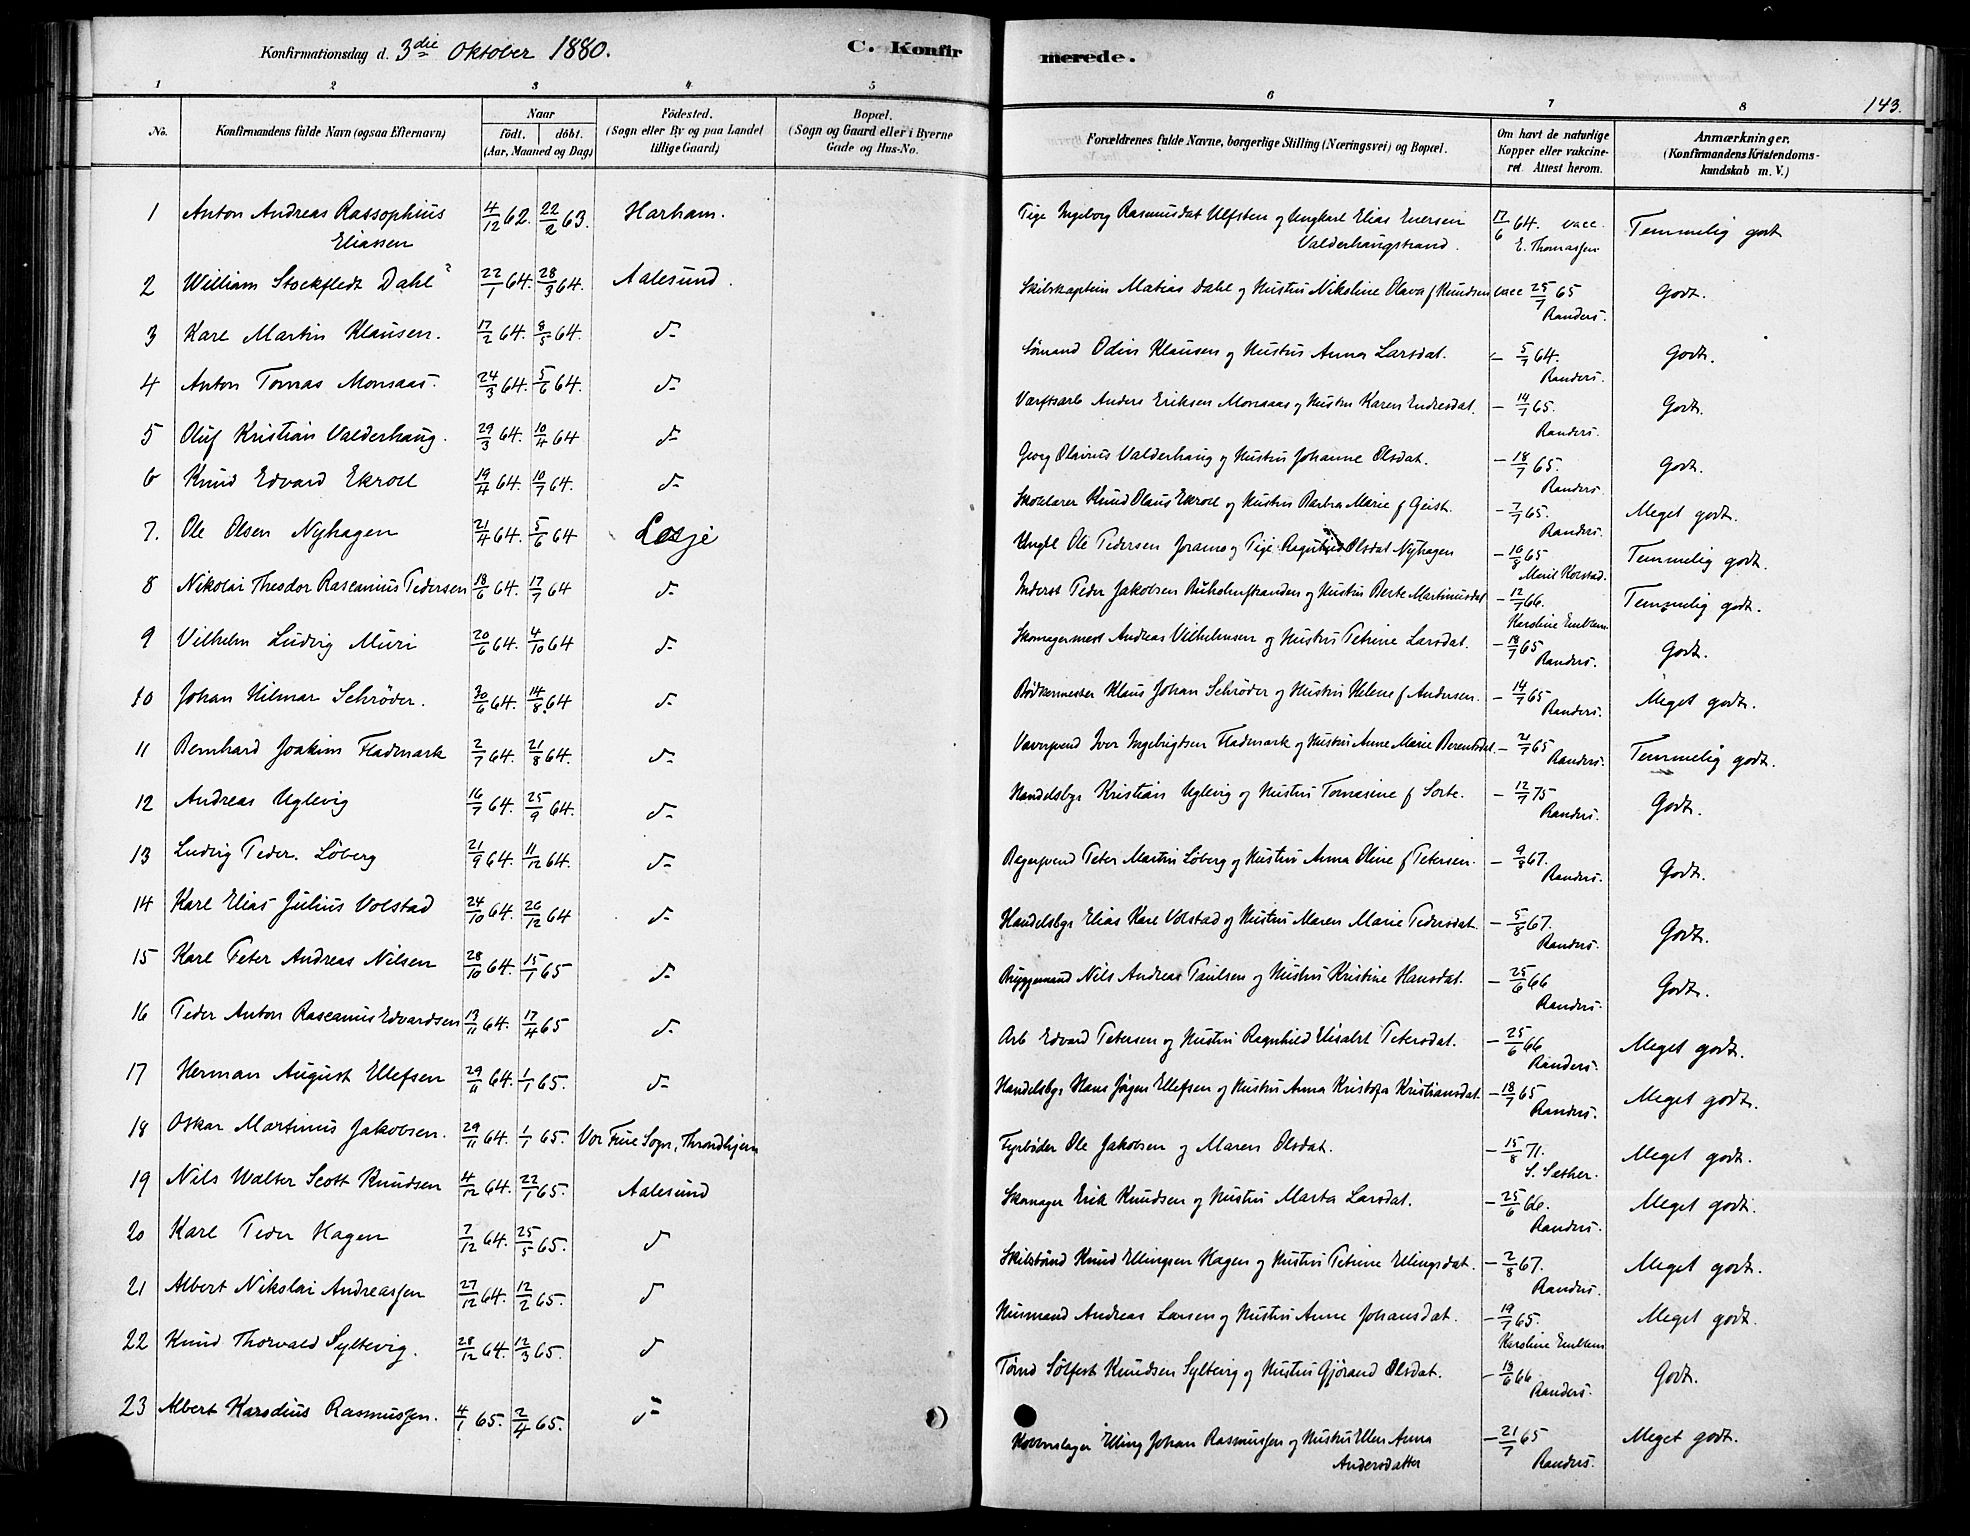 Konfirmationsdag d. 3die Oktober 1880.
C. Konfirmerede.
143.
1 2 3 4 5 6 7 8
No.
Konfirmandens fulde Navn (ogsaa Efternavn)
Naar
födt. döbt.
(Aar, Maaned og Dag)
Födested.
(Sogn eller By og paa Landet
tillige Gaard)
Bopæl.
(Sogn og Gaard eller i Byerne
Gade og Hus-No.
Forældrenes fulde Navne, borgerlige Stilling (Næringsvei) og Bopæl.
Om havt de naturlige
Kopper eller vakcine-
ret. Attest herom.
Anmærkninger.
(Konfirmandens Kristendoms-
kundskab m. V.)
1 Anton Andreas Rassophius 4/12 62. 22/2 63. Harham. Pige Ingeborg Rasmusdat Ulfsten og Ungkarl Elias Enersen 17/6 64. vacc. Temmelig godt
Eliassen Valderhaugstrand. E. Thomassen
2 William Stockfledt Dahl 22/1 64. 28/3 64. Aalesund. Skibskaptein Matias Dahl og Hustru Nikoline Olava f Knudsen vacc 25/7 65 Godt.
Randers.
3 Karl Martin Klausen. 17/2 64. 8/5 64. d- Sömand Odin Klausen og Hustru Anna Larsdat. - 5/7 64. Godt.
Randers.
4 Anton Tomas Monsaas. 24/3 64. 5/6 64. d- Værftsarb Anders Eriksen Monsaas og Hustru Karen Endresdat. - 14/7 65. Godt.
Randers.
5 Oluf Kristian Valderhaug. 29/3 64. 10/4 64 d- Georg Olavius Valderhaug og Hustru Johanne Olsdat. - 18/7 65. Godt.
Randers
6 Knud Edvard Ekroll 19/4 64. 10/7 64. d- Skolelærer Knud Olaus Ekroll og Hustru Barbra Marie f Geist. - 7/7 65. Meget godt.
Randers.
7. Ole Olsen Nyhagen 21/4 64. 5/6 64 Lesje Ungkl Ole Pedersen Joramo og Pige Ragnhild Olsdat Nyhagen - 10/8 65 Temmelig godt.
Marit Kolstad.
8 Nikolai Theodor Rascanius Pedersen 18/6 64. 17/7 64 d- Inderst Peder Jakobsen Buholmstranden og Hustru Berte Martinusdat - 12/7 66. Temmelig godt.
Karoline Emblem
9 Vilhelm Ludvig Muri 20/6 64. 4/10 64 d- Skomagermest Andreas Vilhelmsen og Hustru Petrine Larsdat. - 18/7 65 Godt.
Randers.
10 Johan Hilmar Schröder. 30/6 64. 14/8 64 d- Bödkermester Klaus Johan Schröder og Hustru Helene f Andersen. - 14/7 65 Meget godt.
Randers.
11 Bernhard Joakim Fladmark 2/7 64. 21/8 64. d- Iver Ingebrigtsen Fladmark og Hustru Anne Marie Berentsdat. - 21/7 65 Temmelig godt.
Randers.
12 Andreas Uglevig 16/7 64. 25/9 64. d- Handelsbgr Kristian Uglevig og Hustru Tomasine f Sorte. - 12/7 75 Godt.
Randers.
13 Ludvig Peder Löberg 21/9 64. 11/12 64. d- Bagersvend Peter Martin Löberg og Hustru Anna Oline f Petersen. - 9/8 67. Godt.
Randers.
14 Karl Elias Julius Volstad 24/10 64. 26/12 64 d- Handelsbgr Elias Karl Volstad og Hustru Maren Marie Pedersdat. - 5/8 67. Godt.
Randers.
15 Karl Peter Andreas Nilsen 28/10 64. 15/1 65 d- Bryggemand Nils Andreas Paulsen og Hustru Kristine Hansdat. - 25/6 66 Godt.
Randers.
16 Peder Anton Rascanius Edvardsen 13/11 64. 17/4 65 d- Arb Edvard Petersen og Hustru Ragnhild Elisabet Petersdat. - 25/6 66 Meget godt.
Randers.
17 Herman August Ellefsen 29/11 64. 1/1 65. d- Handelsbgr Hans Jörgen Ellefsen og Hustru Anna Kristofa Kristiansdat. - 18/7 65 Meget godt.
Randers.
18 Oskar Martinus Jakobsen. 29/11 64. 1/1 65. Vor Frue Sogn, Throndhjem Fyrböder Ole Jakobsen og Maren Olsdat. - 15/8 71. Meget godt.
S. Sæther.
19 Nils Walter Scott Knudsen 4/12 64. 22/1 65. Aalesund Skomager Erik Knudsen og Hustru Marta Larsdat. - 25/6 66. Meget godt.
Randers.
20 Karl Peder Hagen 7/12 64. 25/5 65. d Knud Ellingsen Hagen og Hustru Petrine Ellingsdat. - 2/8 67. Meget godt.
Randers.
21 Albert Nikolai Andreassen 27/12 64. 12/2 65. d Husmand Andreas Larsen og Hustru Anne Johansdat. - 19/7 65. Meget godt.
Karoline Emblem
22 Knud Thorvald Syltevig. 28/12 64. 12/3 65. d Tömd Sölfest Knudsen Syltevig og Hustru Gjörand Olsdat. - 18/6 66. Godt.
Randers.
23 Albert Karsdius Rasmussen. 4/1 65. 2/4 65. d- Elling Johan Rasmussen og Hustru Ellen Anna - 21/7 65 Meget godt.
Andersdatter Randers.